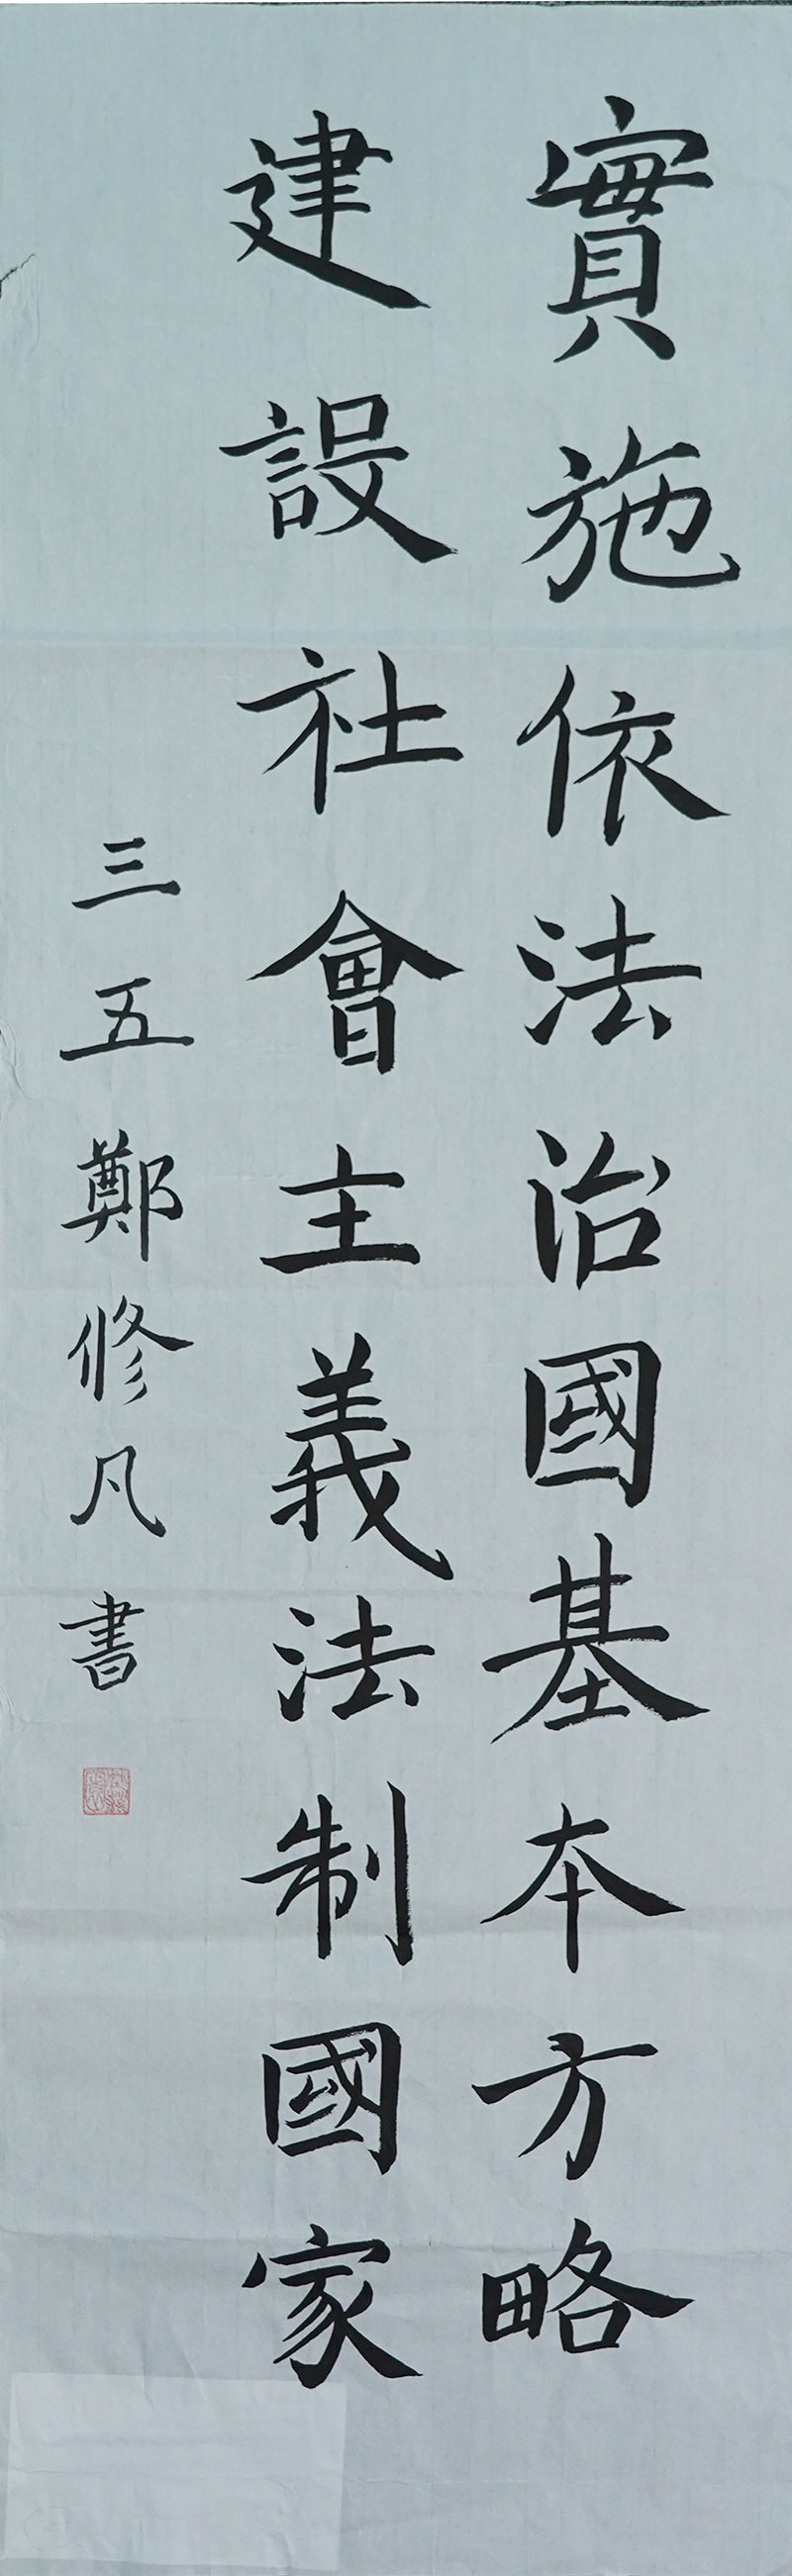 實施依法治國基本方略
建設社會主義法制國家
三五鄭修凡書